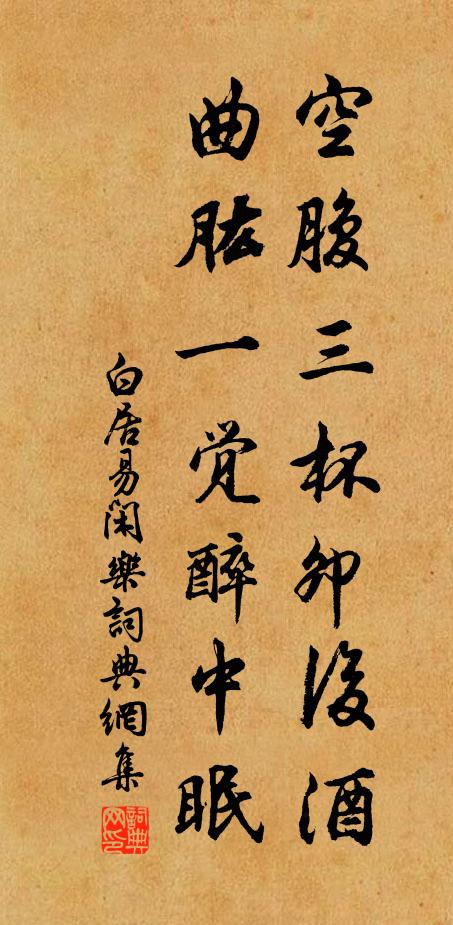 空腹三杯卯後酒
曲肱一觉醉中眠
白居易閑樂詞典網集
詞典网印